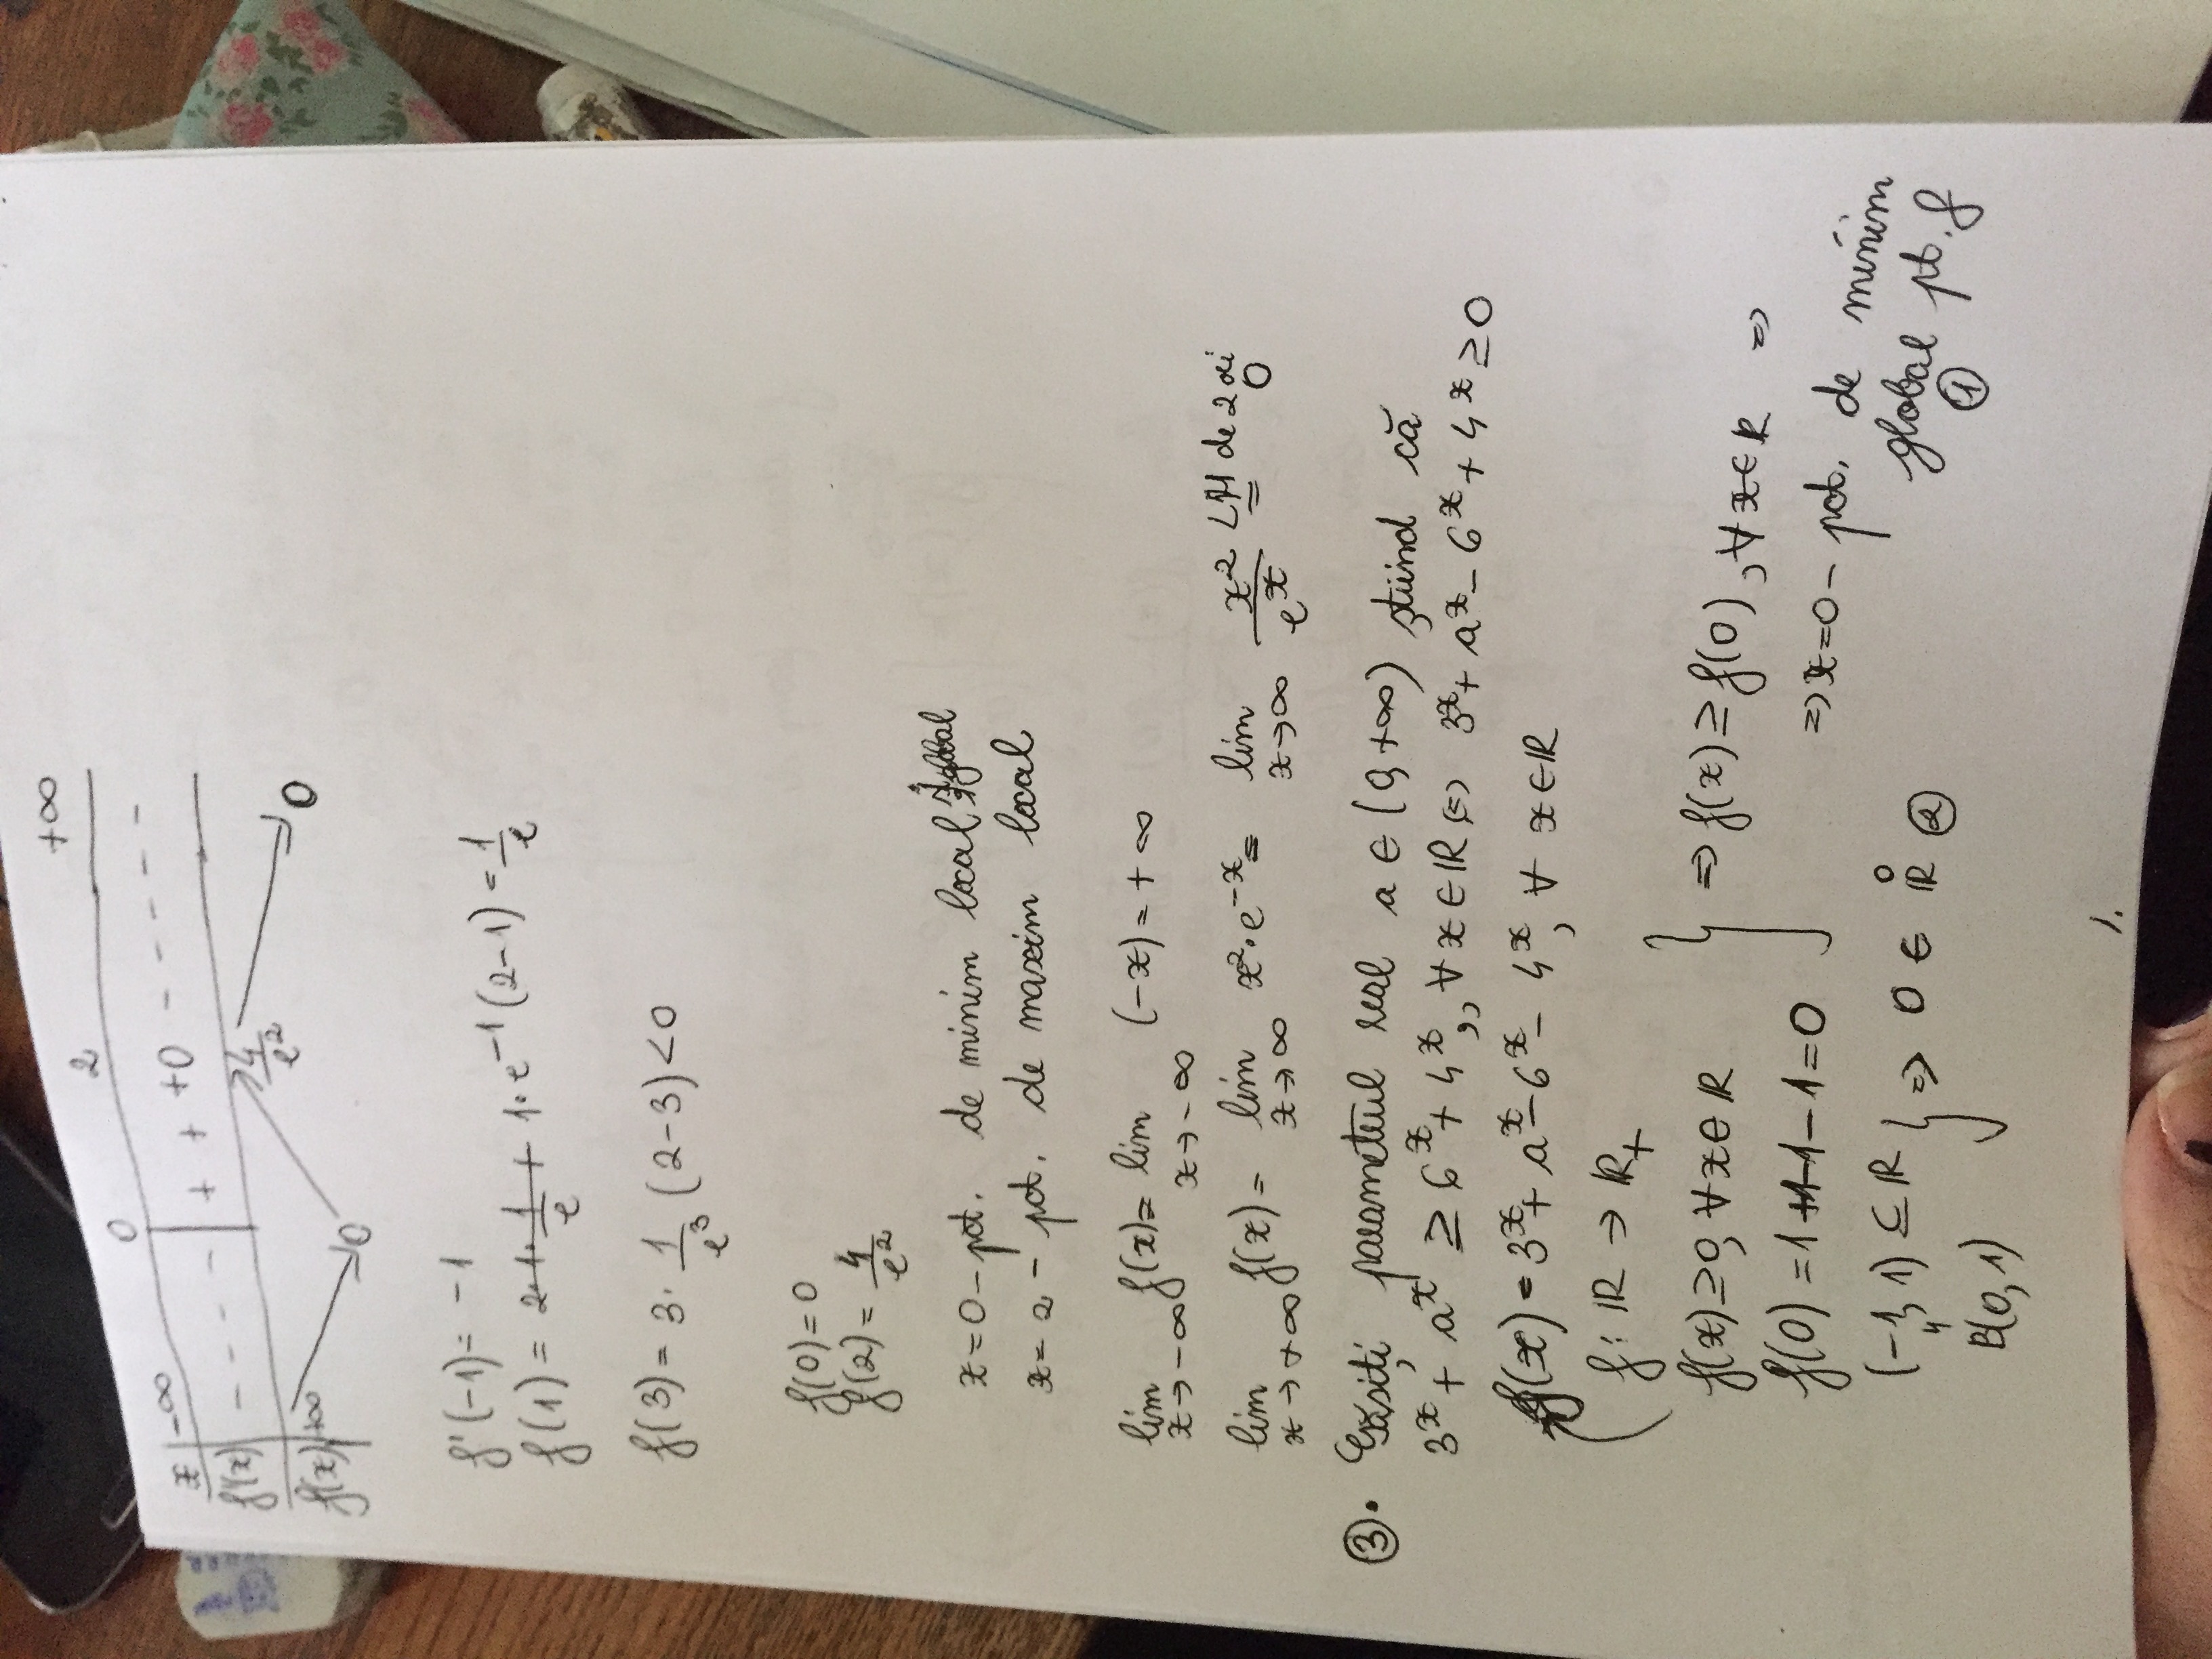 x -∞ 0 2 +∞
f'(x) - - - - + + +0 - - - - -
f(x) +∞ 0 4/e² 0
f'(-1) = -1
f(1) = 2 · 1/e + 1 · e⁻¹(2-1) = 1/e
f(3) = 3 · 1/e³ (2-3) < 0
f(0) = 0
f(2) = 4/e²
x=0 - pct. de minim local
x=2 - pct. de maxim local
lim x→-∞ f(x) = lim x→-∞ (-x) = +∞
lim x→+∞ f(x) = lim x→∞ x² · e⁻ˣ = lim x→∞ x²/eˣ L'H = de 2 ori 0
③. Găsiți parametrul real a ∈ (0, +∞) știind că
3ˣ + aˣ ≥ 6ˣ + 4ˣ, ∀ x ∈ ℝ ⇔ 3ˣ + aˣ - 6ˣ + 4ˣ ≥ 0
f(x) = 3ˣ + aˣ - 6ˣ - 4ˣ, ∀ x ∈ ℝ
f: ℝ → ℝ₊
f(x) ≥ 0, ∀ x ∈ ℝ
f(0) = 1+1-1-1 = 0 } ⇒ f(x) ≥ f(0), ∀ x ∈ ℝ ⇒
⇒ x=0 - pct. de minim
global pt. f
①
(-1, 1) ⊆ ℝ } ⇒ 0 ∈ ℝ̊ ②
"
B(0, 1)
1.